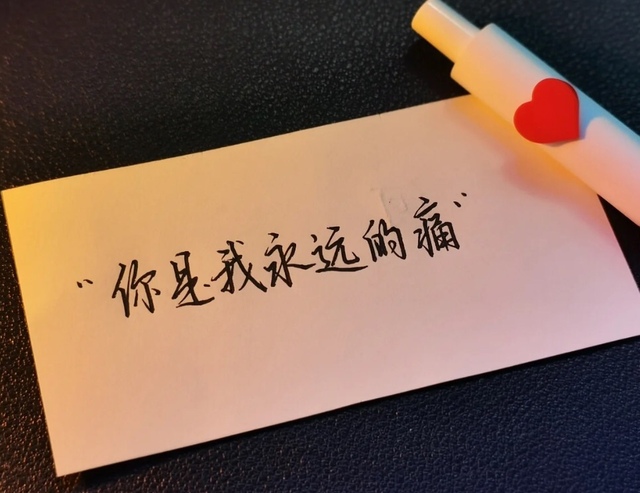 “你是我永远的痛”